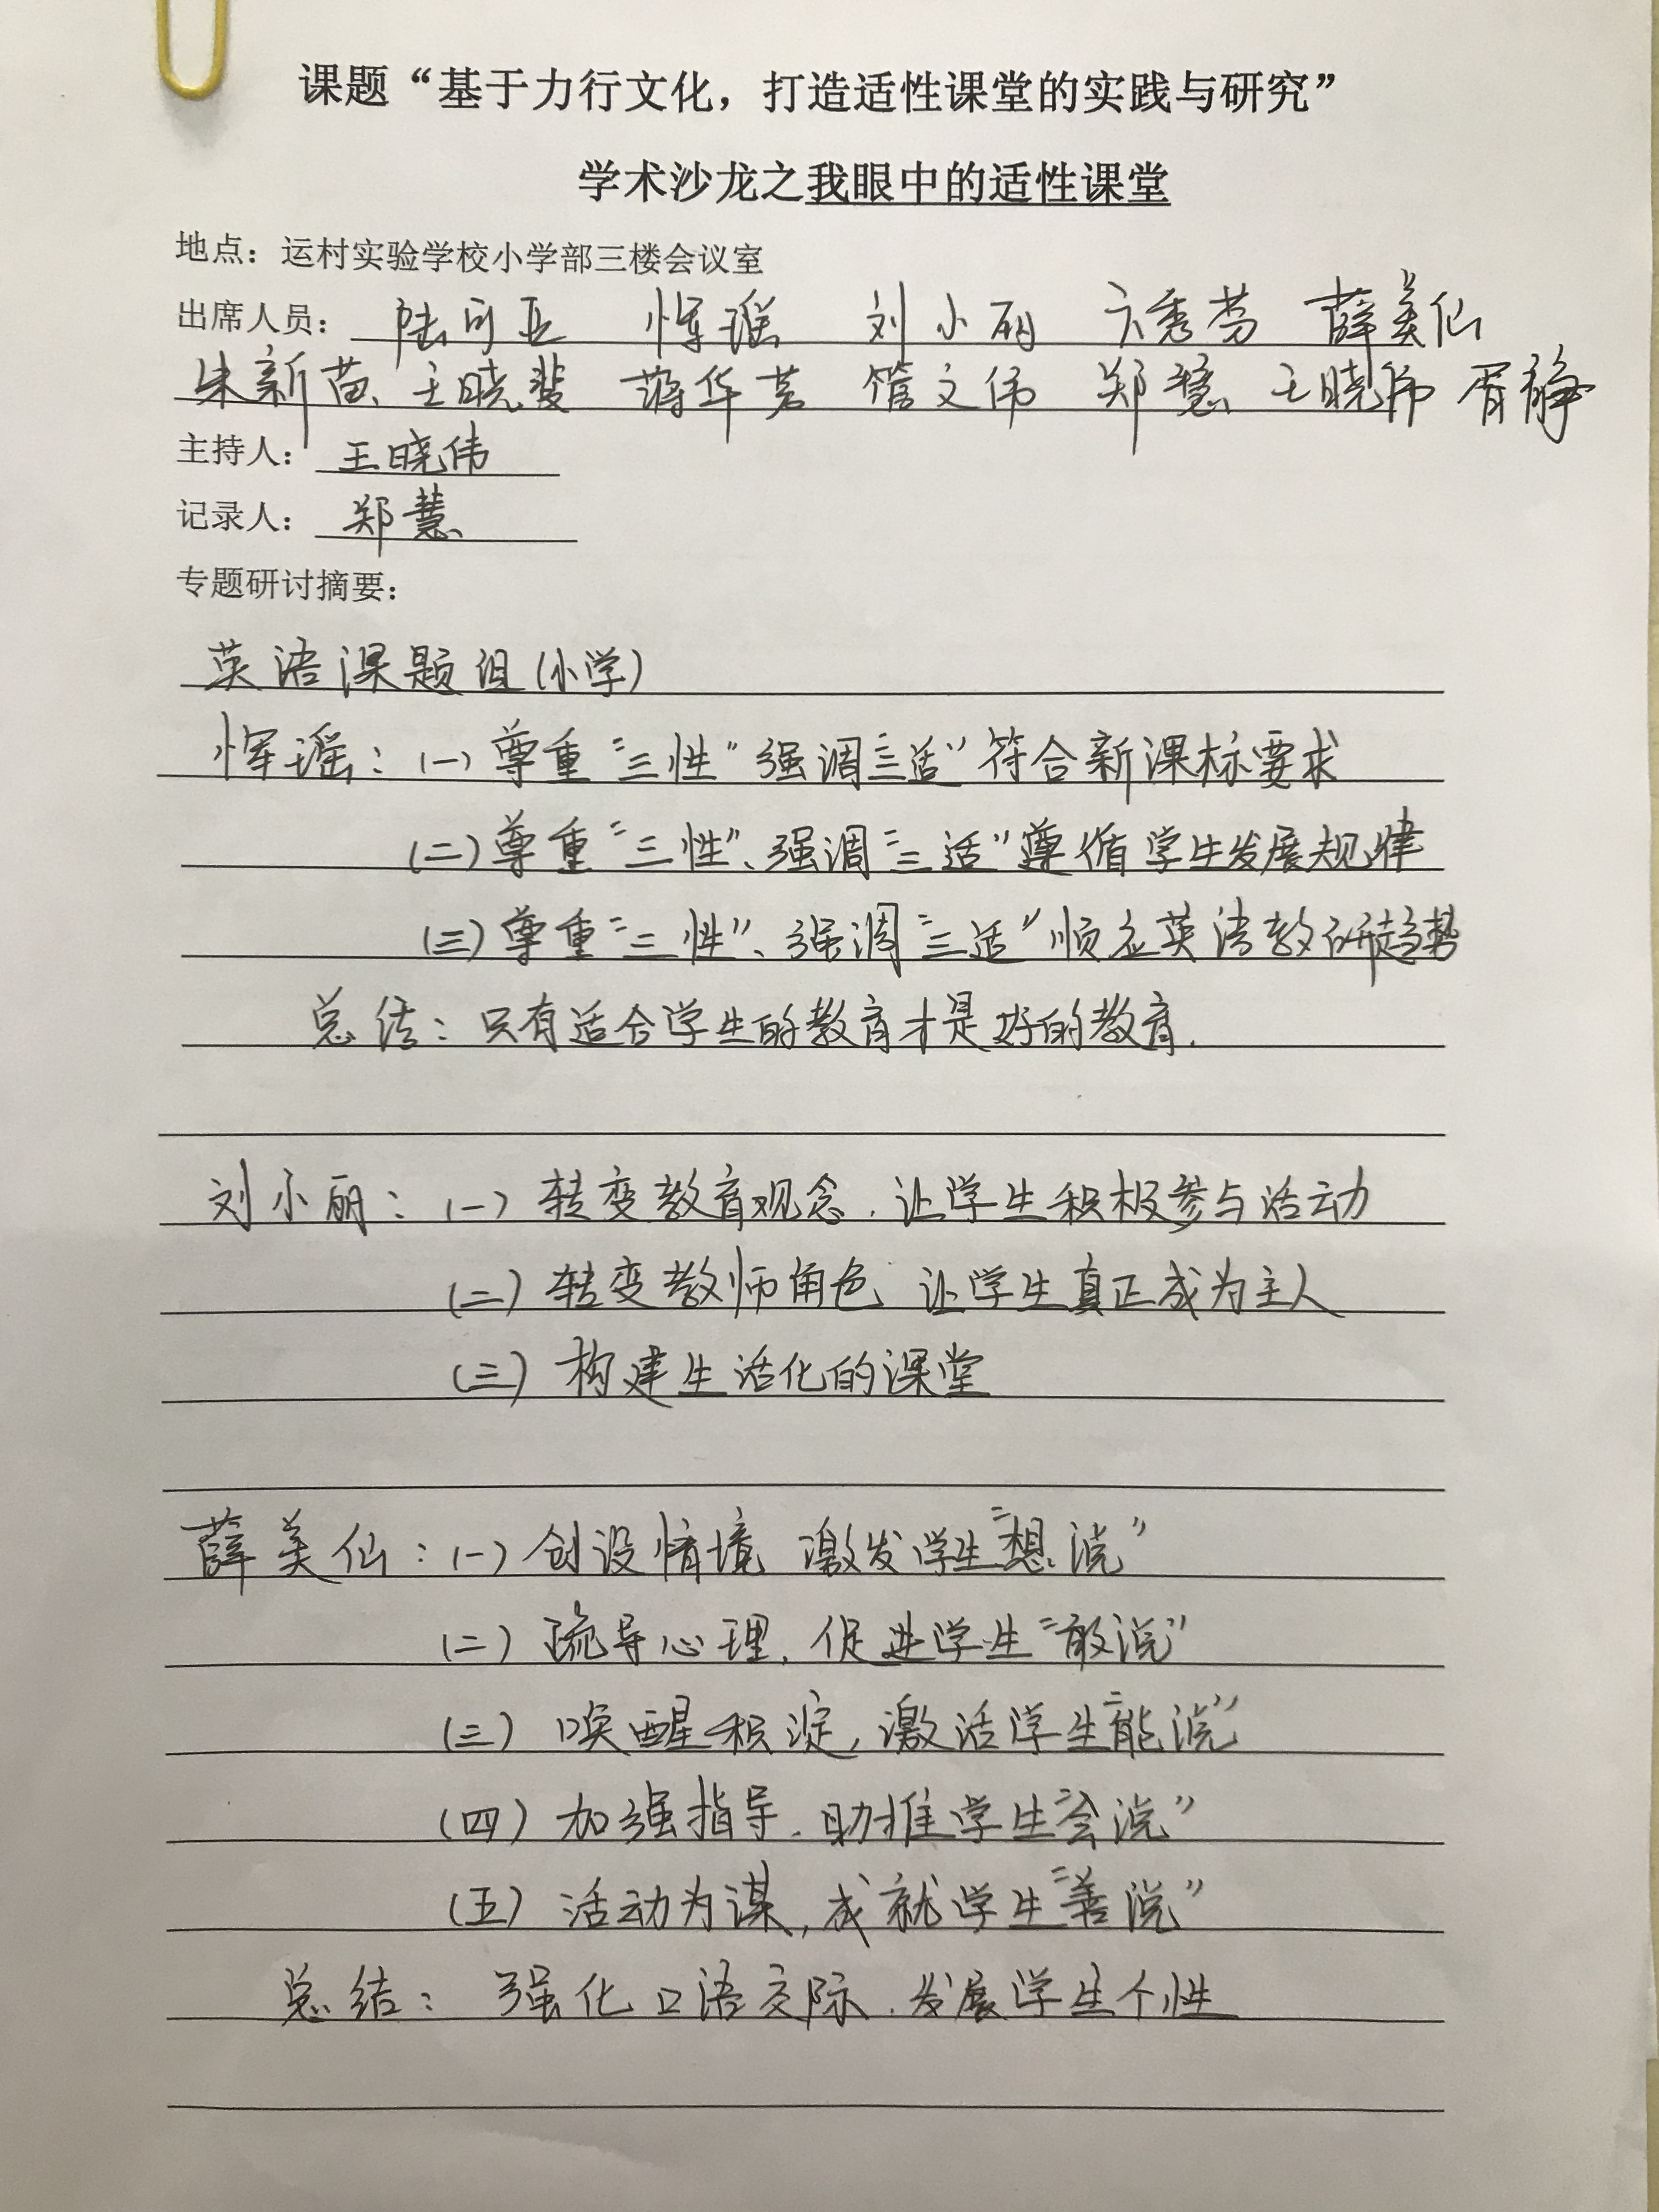 课题“基于力行文化，打造适性课堂的实践与研究”
学术沙龙之我眼中的适性课堂
地点：运村实验学校小学部三楼会议室
出席人员：陆可亚 恽瑶 刘小丽 卞秀芬 薛美仙
朱新苗 王晓斐 蒋华茗 管文伟 郑慧 王晓伟 胥静
主持人：王晓伟
记录人：郑慧
专题研讨摘要：
英语课题组(小学)
恽瑶：(一)尊重“三性”强调三适”符合新课标要求
(二)尊重“三性”、强调“三适”遵循学生发展规律
(三)尊重“三性”、强调“三适”顺应英语教研趋势
总结：只有适合学生的教育才是好的教育.
刘小丽：(一)转变教育观念.让学生积极参与活动
(二)转变教师角色 让学生真正成为主人
(三)构建生活化的课堂
薛美仙：(一)创设情境 激发学生“想说”
(二)疏导心理,促进学生“敢说”
(三)唤醒积淀,激活学生“能说”
(四)加强指导.助推学生“会说”
(五)活动为谋,成就学生“善说”
总结：强化口语交际.发展学生个性